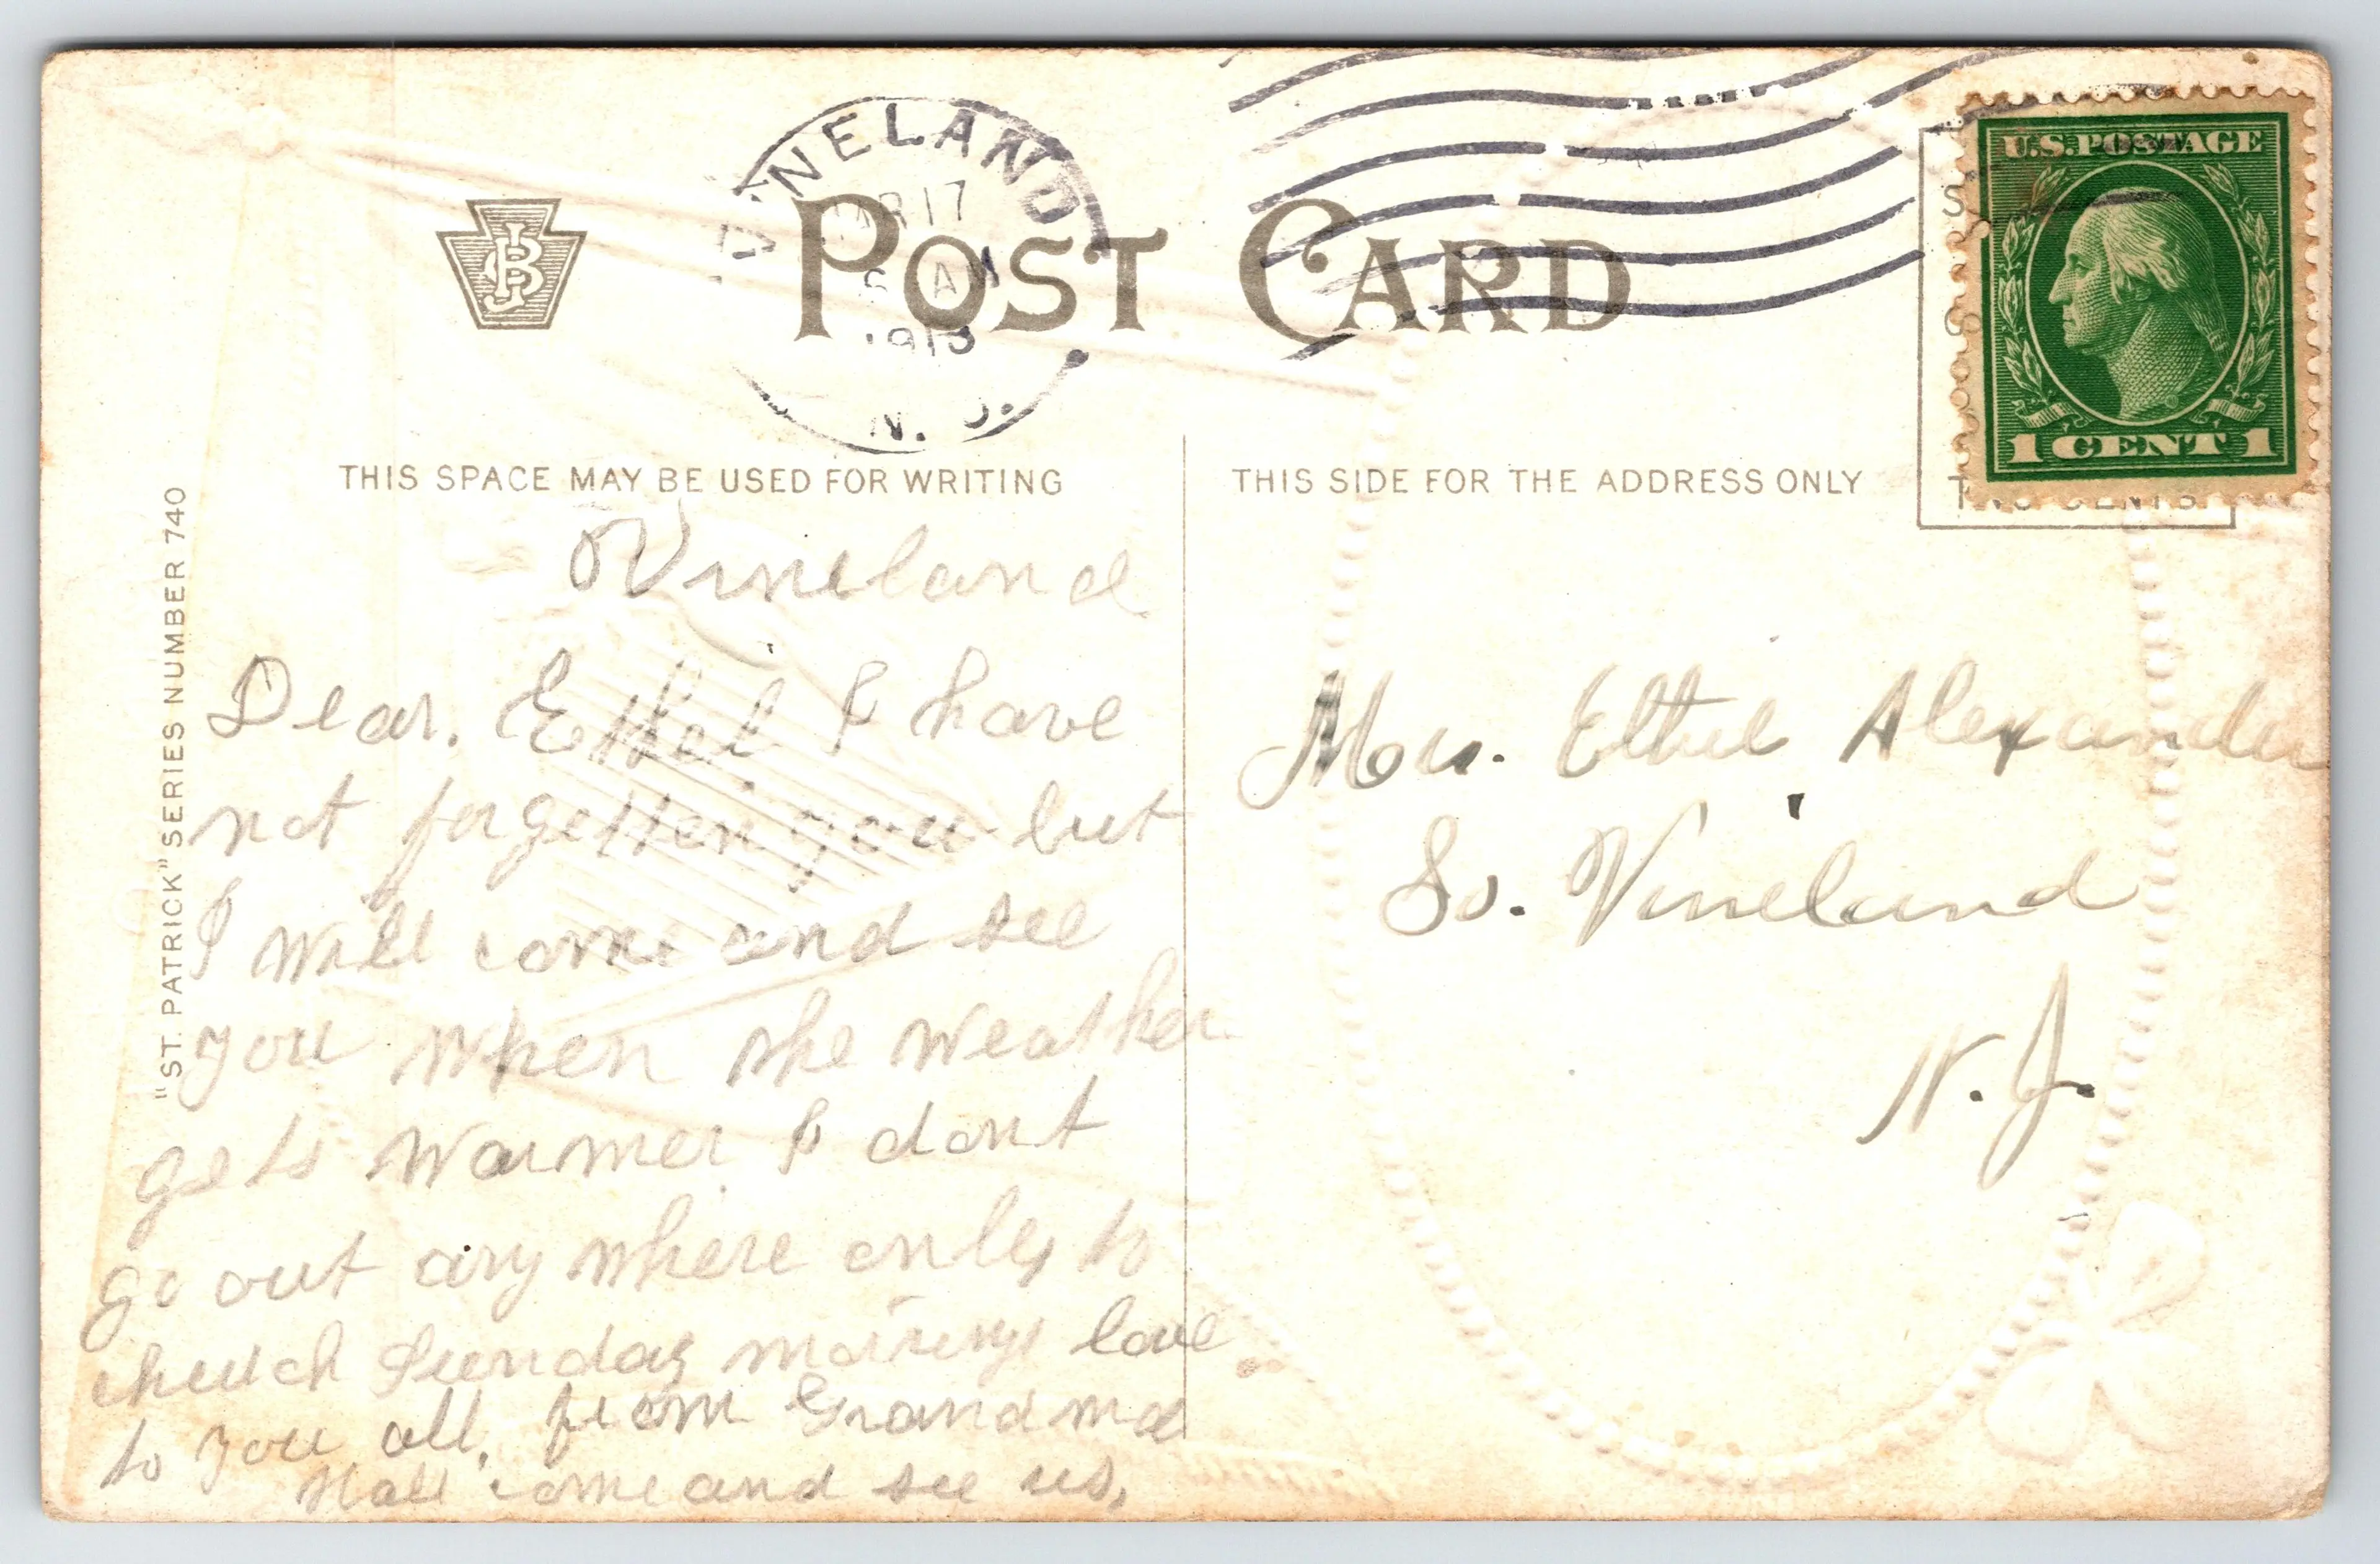 VINELAND
MAR 17
AM
1913
N. J.
U.S. POSTAGE
1 CENT 1
JB
POST CARD
THIS SPACE MAY BE USED FOR WRITING
THIS SIDE FOR THE ADDRESS ONLY
TWO CENTS
"ST. PATRICK" SERIES NUMBER 740
Vineland
Dear. Ethel I have
not forgetten you but
I will come and see
you when the weather
gets warmer I dont
go out any where only to
church Sunday mornings love
to you all. from Grandma
Hall come and see us,
Mrs. Ethel Alexander
So. Vineland
N. J.